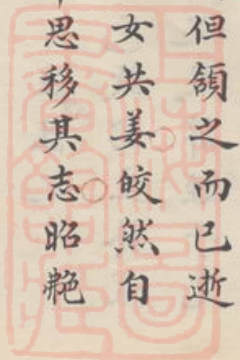 但頷之而已逝
女共姜皎然自
思移其志昭艷